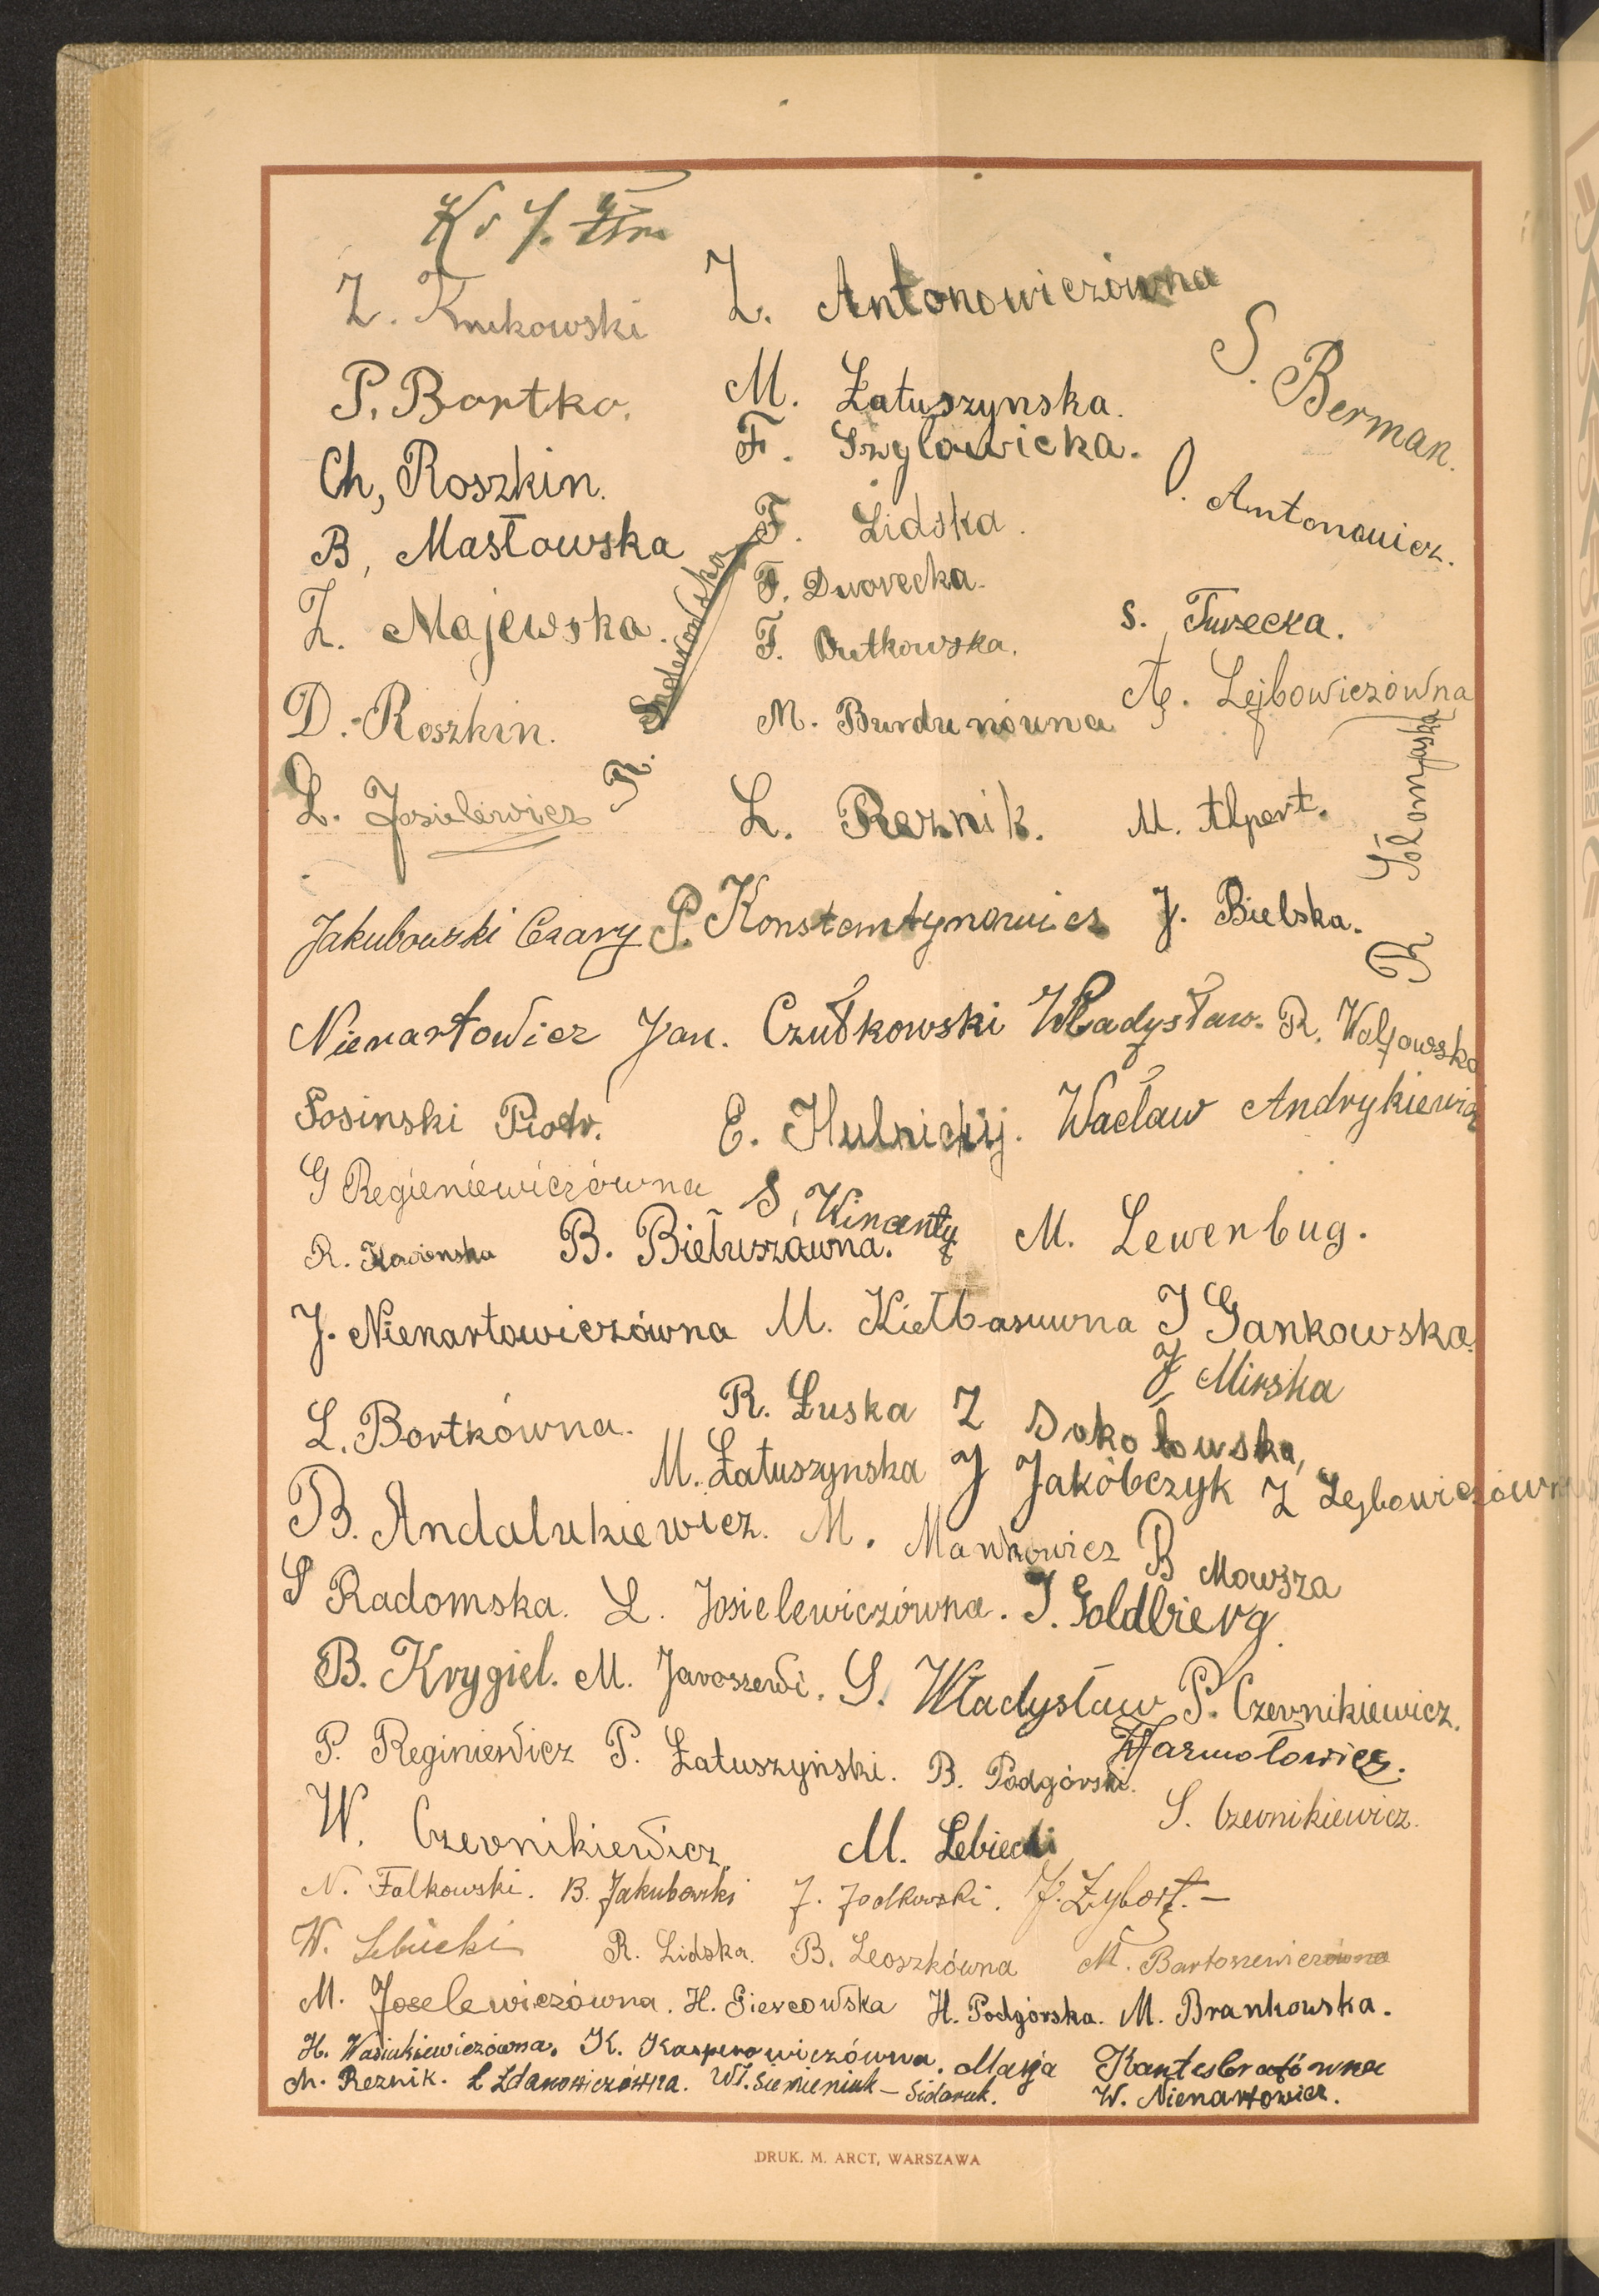 Z. Antonowiczówna
P. Bortko.
M. Łatuszynska.
S. Berman.
Ch, Roszkin.
F. Szylowicka.
O. Antonowicz.
B, Masłowska
F. Lidska.
Z. Majewska.
F. Dworecka.
S. Turecka.
F. Rutkowska.
D. Roszkin.
M. Burdunówna
Lejbowiczówna
L. Josielewicz
F.
L. Reznik.
M. Alpert.
R Słonimska
Jakubowski Czary
P. Konstantynowicz
J. Bielska.
Nienartowicz Jan.
Czułkowski Władysław.
R. Wolfowska
Sosinski Piotr.
E. Hulnickij.
Wacław Andrykiewicz
G Regieniewiczówna
S, Winanty
R.
B. Biełuszówna.
M. Lewenbug.
J. Nienartowiczówna
M. Kiełbasuwna
J Gankowska.
J Mirska
L. Bortkówna.
R. Łuska
Z Sokołowska,
M. Łatuszynska
J Jakóbczyk
Z Lejbowiczówna
B. Andalukiewicz.
M. Mankowicz
B Mowsza
S Radomska.
L. Josielewiczówna.
J. Goldbierg.
B. Krygiel.
M. Jaroszewi.
S. Władysław
P. Czernikiewicz.
P. Reginiewicz
P. Łatuszyński.
B. Podgórski.
Jarmołowicz.
W. Czernikiewicz.
M. Lebiecki
S. Czernikiewicz.
N. Falkowski.
B. Jakubowski
J. Jodkowski.
J. Zybort.-
W. Lebiecki
R. Lidska.
B. Leoszkówna
M. Bartoszewiczówna
M. Joselewiczówna.
H. Giercowska
H. Podgórska.
M. Brankowska.
H. Wasiukiewiczówna.
K. Kasperowiczówna.
Marja Kantesbratówna
M. Reznik.
L Zdanowiczówna.
Wł. Siemieniuk - Sidaruk.
W. Nienartowicz.
DRUK. M. ARCT, WARSZAWA